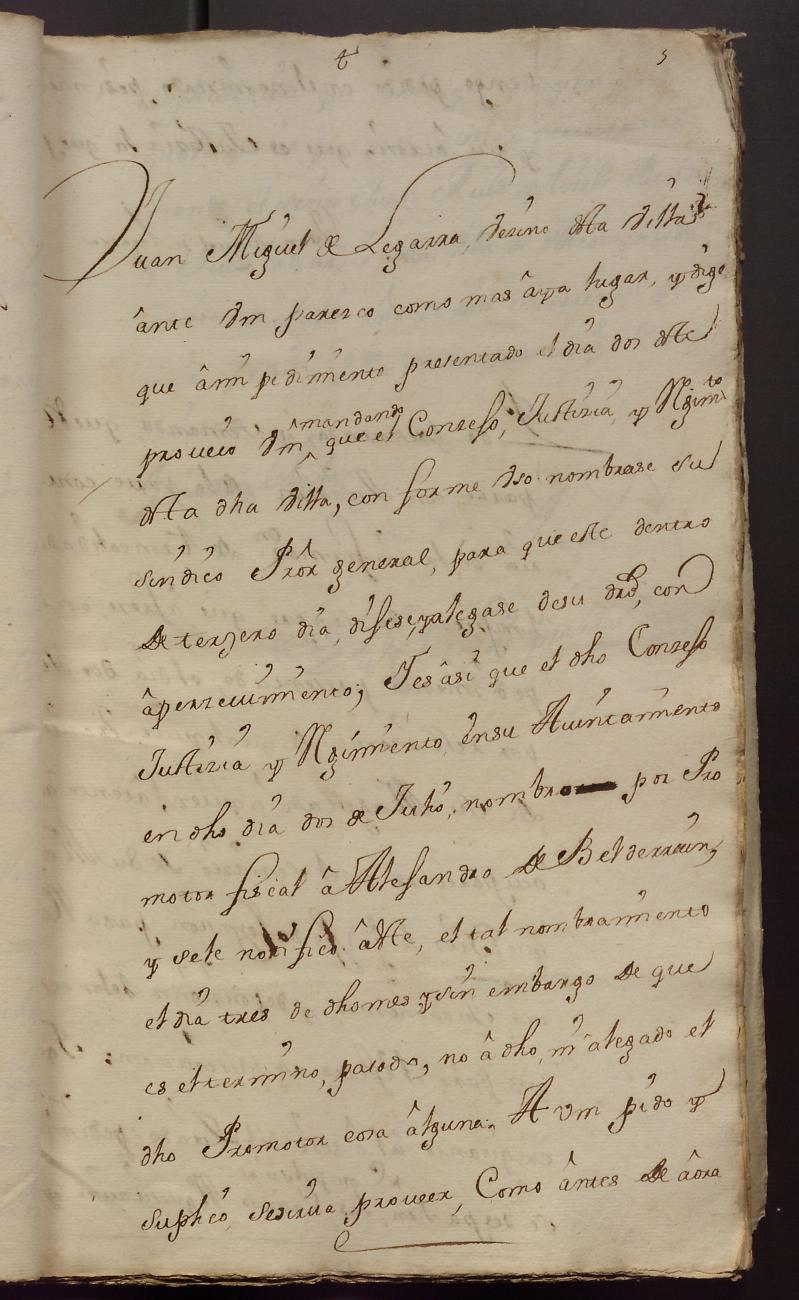 + 5
Juan Miguel de Legarra, vezino desta Villa
ânte Vm parezco como mas âya lugar, y digo
que âmi pedimiento presentado el dia dos deste
proveio Vm ^mandando que el Conzejo, Justizia, y Regim.to
desta dha Villa, conforme Uso nombrase su
sindico Prôr general, para que este dentro
de terzero dia, dijese, y alegase desu dro, con
âperzevimiento; Y es âsi que el dho Conzejo
Justizia y Regimiento, ensu Aiuntamiento
en dho dia dos de Julio, nombro por Pro
motor fiscal â Alejandro de Belderrain,
y sele notifico âeste, el tal nombramiento
el dia tres de dho mes y sin embargo de que
es el termino, pasado, no â dho, ni alegado el
dho Promotor cosa âlguna. A Vm pido y
suplico, sesirva proveer, Como ântes de âora